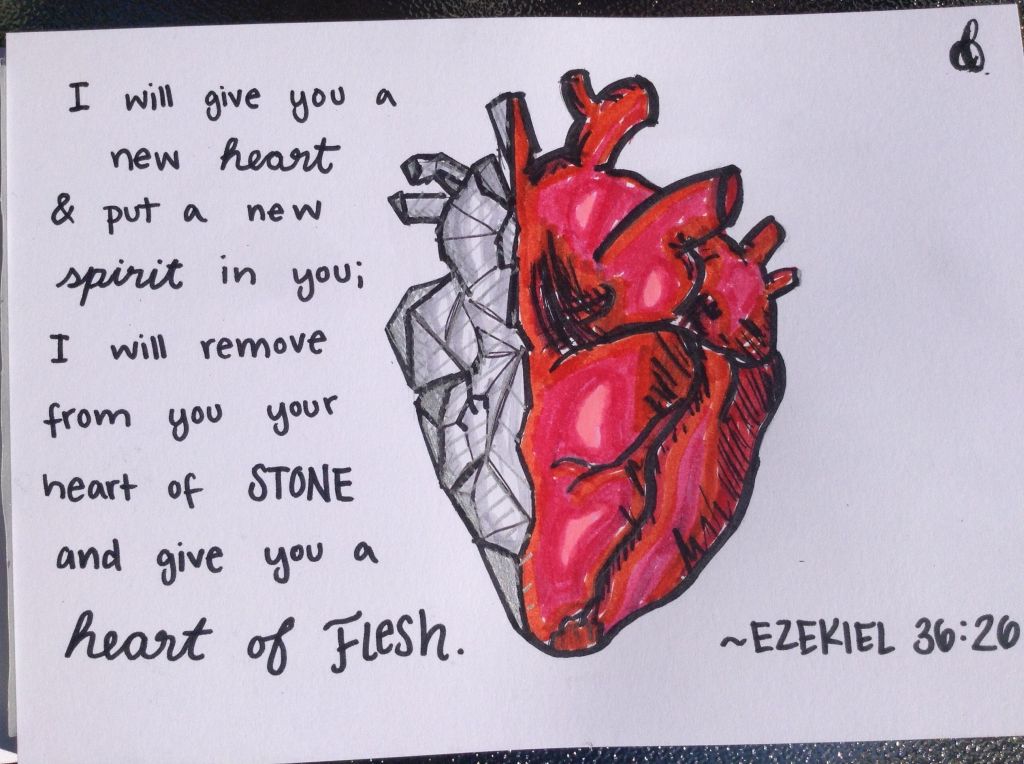 I will give you a
new heart
& put a new
spirit in you;
I will remove
from you your
heart of STONE
and give you a
heart of Flesh.
~EZEKIEL 36:26